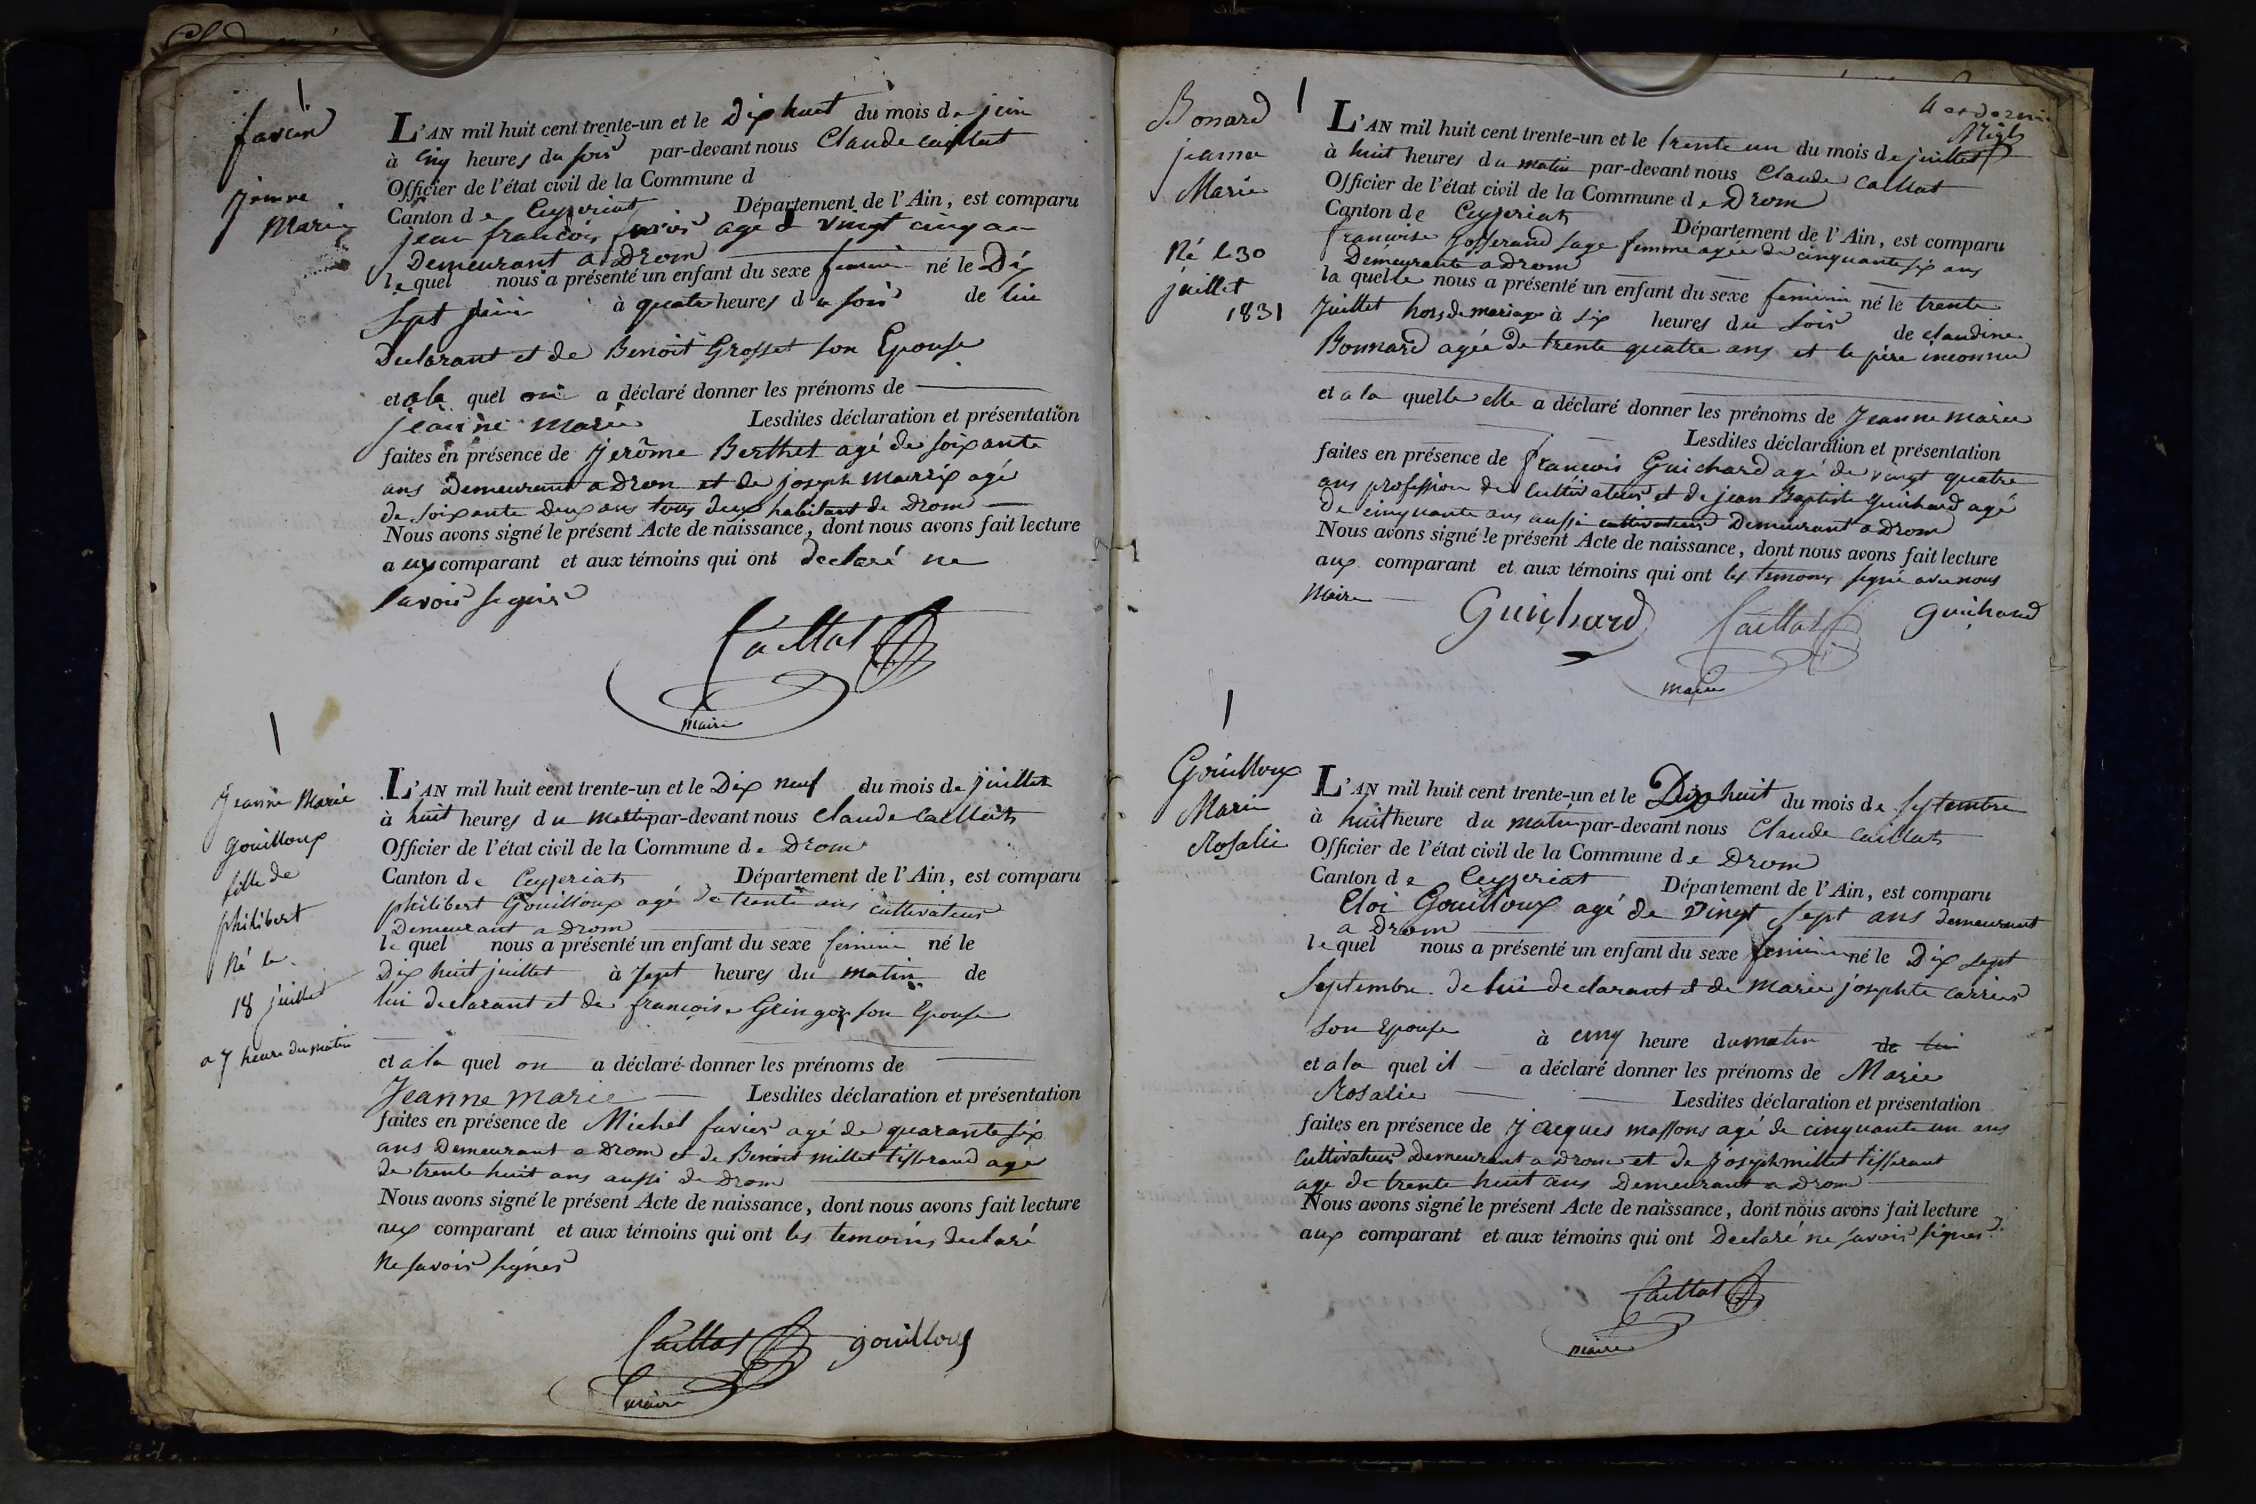 favier
jeanne
Marie
L'AN mil huit cent trente-un et le Dix huit du mois de juin
à cinq heures du soir par-devant nous Claude Caillat
Officier de l'état civil de la Commune d
Canton de Ceyzeriat Département de l'Ain, est comparu
jean françois favier age d vingt cinq an
Demeurant a Drom
lequel nous a présenté un enfant du sexe feminin né le Dix
sept juin à quatre heures du soir de lui
Declarant et de Benoit Grosset son Epouse
et a la quel on a déclaré donner les prénoms de
jeanne Marie Lesdites déclaration et présentation
faites en présence de jerôme Berthet agé de soixante
ans Demeurant a Drom et de joseph agé
de soixante deux ans tous deux habitant de Drom
Nous avons signé le présent Acte de naissance, dont nous avons fait lecture
aux comparant et aux témoins qui ont declaré ne
savoir signer
Caillat
maire
Jeanne Marie
Gouilloux
fille de
philibert
Né le
18 juillet
a 7 heure du matin
L'AN mil huit cent trente-un et le Dix neuf du mois de juillet
à huit heures du matin par-devant nous Claude Caillat
Officier de l'état civil de la Commune de Drom
Canton de Ceyzeriat Département de l'Ain, est comparu
philibert Gouilloux agé de trente ans cultivateur
Demeurant a Drom
lequel nous a présenté un enfant du sexe feminin né le
Dix huit juillet à sept heures du matin de
lui declarant et de françoise Gringoz son Epouse
et a la quel on a déclaré donner les prénoms de
Jeanne marie Lesdites déclaration et présentation
faites en présence de Michel favier agé de quarante six
ans Demeurant a Drom et de Benoit millet tisserand agé
de trente huit ans aussi de Drom
Nous avons signé le présent Acte de naissance, dont nous avons fait lecture
aux comparant et aux témoins qui ont les temoins declaré
ne savoir signer
Caillat gouilloux
maire
4 et dernier
Bonard
jeanne
Marie
Né le 30
juillet
1831
L'AN mil huit cent trente-un et le trente un du mois de juillet
à huit heures du matin par-devant nous Claude Caillat
Officier de l'état civil de la Commune de Drom
Canton de Ceyzeriat Département de l'Ain, est comparu
francoise josserand sage femme agée de cinquante six ans
Demeurante a Drom
la quelle nous a présenté un enfant du sexe feminin né le trente
Juillet hors de mariage à six heures du soir de claudine
Bonnard agée de trente quatre ans et le père inconnu
et a la quelle elle a déclaré donner les prénoms de Jeanne Marie
Lesdites déclaration et présentation
faites en présence de francois Guichard agé de vingt quatre
ans profession de cultivateur et de jean Baptiste Guichard agé
de cinquante ans aussi cultivateur Demeurant a Drom
Nous avons signé le présent Acte de naissance, dont nous avons fait lecture
aux comparant et aux témoins qui ont les temoins signé avec nous
Maire
Guichard Caillat guichard
maire
Gouilloux
Marie
Rosalie
L'AN mil huit cent trente-un et le Dix huit du mois de Septembre
à huit heure du matin par-devant nous Claude Caillat
Officier de l'état civil de la Commune de Drom
Canton de Ceyzeriat Département de l'Ain, est comparu
Eloi Gouilloux agé de vingt sept ans demeurant
a Drom
lequel nous a présenté un enfant du sexe feminin né le Dix sept
Septembre de lui declarant et de Marie josephte carrier
son Epouse à cinq heure du matin de lui
et a la quel il a déclaré donner les prénoms de Marie
Rosalie Lesdites déclaration et présentation
faites en présence de jacques massons agé de cinquante un ans
cultivateur Demeurant a Drom et de joseph millet tisserant
age de trente huit ans Demeurant a Drom
Nous avons signé le présent Acte de naissance, dont nous avons fait lecture
aux comparant et aux témoins qui ont Declaré ne savoir signer
Caillat
maire